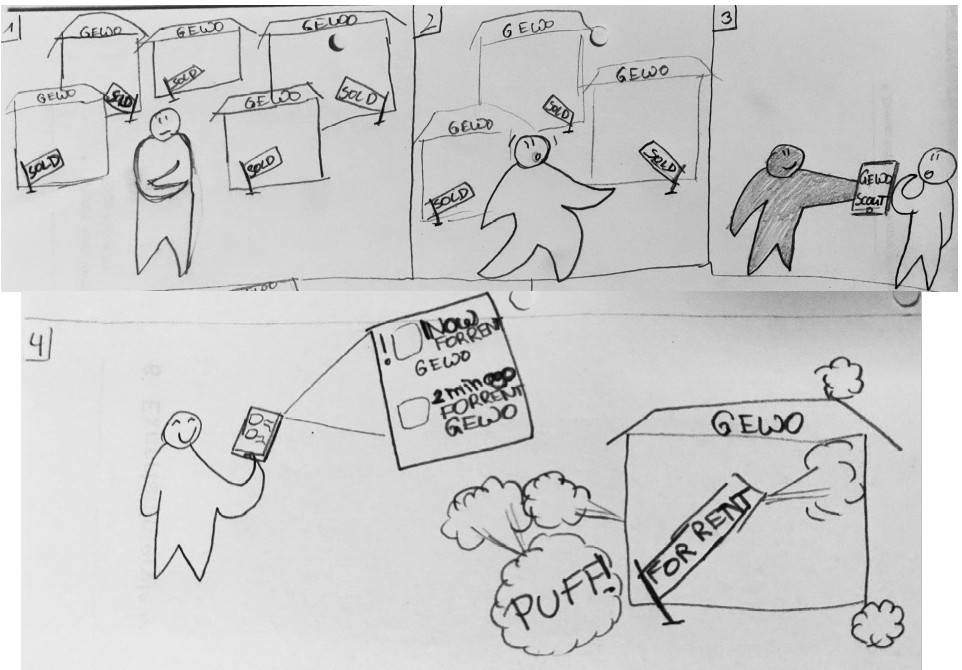 1
GEWO
GEWO
GEWO
SOLD
GEWO
SOLD
GEWO
SOLD
SOLD
SOLD
2
GEWO
GEWO
SOLD
GEWO
SOLD
SOLD
3
GEWO
SCOUT
4
! NOW
FORRENT
GEWO
2 min ago
FORRENT
GEWO
GEWO
FOR RENT
PUFF!